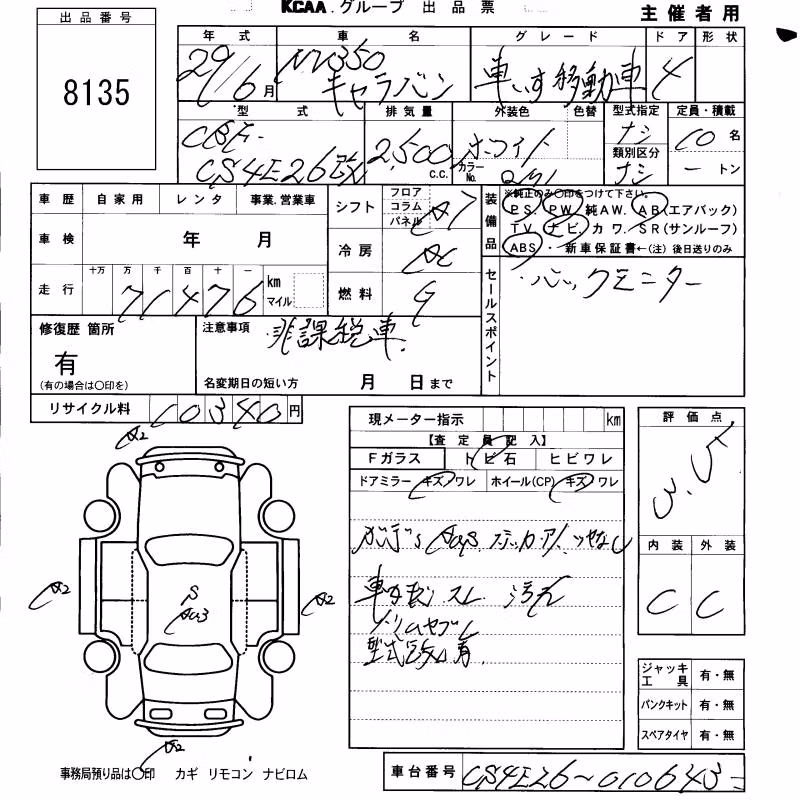 出品番号
8135
KCAA.グループ 出品票
主催者用
年式 車名 グレード ドア 形状
29/6月 NV350 キャラバン 車いす移動車 4
型式 排気量 外装色 色替 型式指定 定員・積載
CBF- 2,500 C.C. ホワイト カラーNo. ナシ 10名
類別区分
ナシ ートン
車歴 自家用 レンタ 事業.営業車
車検 年 月
走行 十万 万 千 百 十 一
71476 km マイル
シフト フロア コラム パネル A7
冷房 AC
燃料 G
装備品
※純正のみ〇印をつけて下さい。
PS. PW. 純AW. AB(エアバック)
TV. ナビ. カワ. SR(サンルーフ)
ABS ・ 新車保証書←(注) 後日送りのみ
セールスポイント
・バックモニター
修復歴 箇所
有
(有の場合は〇印を)
注意事項
非課税車.
名変期日の短い方 月 日まで
リサイクル料 10340円
現メーター指示 km
【査定員記入】
Fガラス トビ石 ヒビワレ
ドアミラー キズ/ワレ ホイール(CP) キズ/ワレ
汚れ
評価点
3.5
内装 外装
C C
A2
A2
S
A2
A2
ジャッキ工具 有・無
パンクキット 有・無
スペアタイヤ 有・無
事務局預り品は〇印 カギ リモコン ナビロム
車台番号 CS4E26~010643